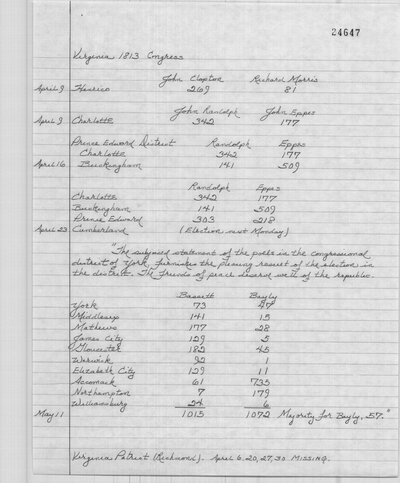 24647
Virginia 1813 Congress
John Clopton Richard Morris
April 9 Henrico 269 81
John Randolph John Eppes
April 9 Charlotte 342 177
Prince Edward District Randolph Eppes
Charlotte 342 177
April 16 Buckingham 141 509
Randolph Eppes
Charlotte 342 177
Buckingham 141 509
Prince Edward 303 218
April 23 Cumberland (Election next Monday)
"The subjoined statement of the polls in the congressional
district of York, furnishes the pleasing result of the election in
the district. The friends of peace deserve well of the republic.
Bassett Bayly
York 73 47
Middlesex 141 15
Mathews 177 28
James City 129 5
Gloucester 182 45
Warwick 92 1
Elizabeth City 129 11
Accomack 61 735
Northampton 7 179
Williamsburg 24 6
May 11 1015 1072 Majority for Bayly, 57."
Virginia Patriot (Richmond). April 6, 20, 27, 30 MISSING.